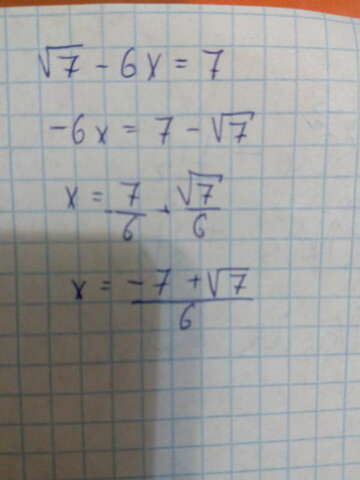 √7 - 6x = 7
-6x = 7 - √7
x = 7/-6 - √7/6
x = (-7 + √7)/6